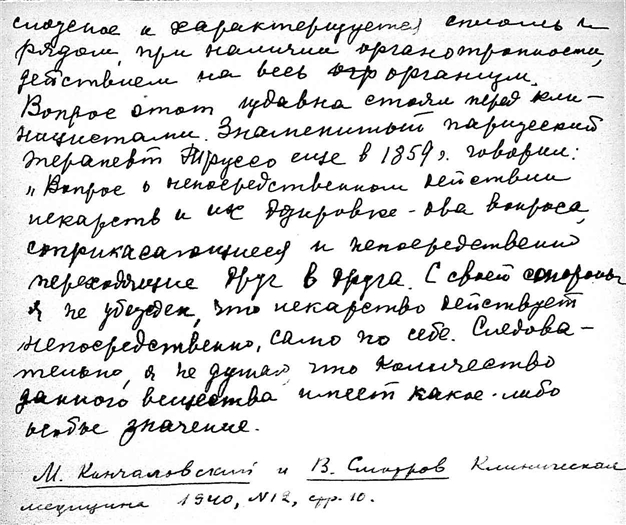 сложное и характеризуется сплошь и
рядом, при наличии органотропности,
действием на весь организм.
Вопрос этот издавна стоял перед кли-
ницистами. Знаменитый парижский
терапевт Труссо еще в 1859 г. говорил:
„Вопрос о непосредственном действии
лекарств и их дозировке - два вопроса,
соприкасающиеся и непосредственно
переходящие друг в друга. С своей стороны
я не убежден, что лекарство действует
непосредственно, само по себе. Следова-
тельно, я не думаю что количество
данного вещества имеет какое-либо
особое значение.
М. Кончаловский и В. Смотров Клиническая
медицина 1940, №12, стр. 10.